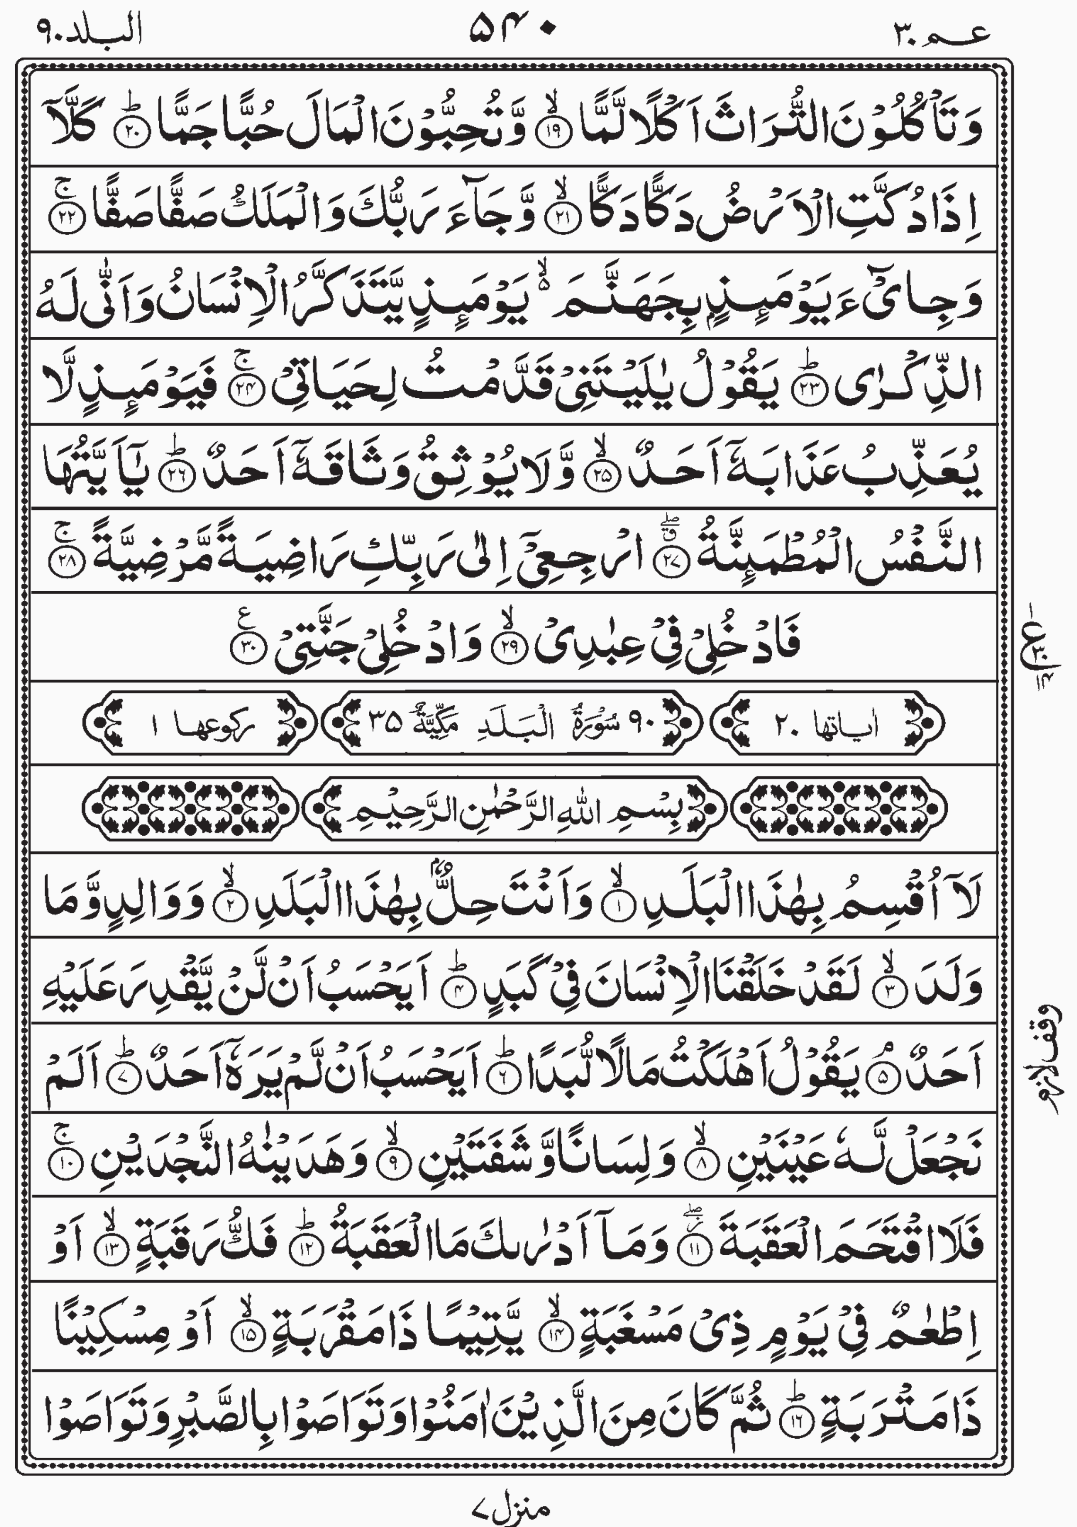 عـم ٣٠ ۵۴۰ البلد ٩٠
وَتَاۡكُلُوۡنَ التُّرَاثَ اَكۡلًا لَّمًّا ۙ‏﴿۱۹﴾ وَّتُحِبُّوۡنَ الۡمَالَ حُبًّا جَمًّا ؕ‏﴿۲۰﴾ كَلَّاۤ
اِذَا دُكَّتِ الۡاَرۡضُ دَكًّا دَكًّا ۙ‏﴿۲۱﴾ وَّجَآءَ رَبُّكَ وَالۡمَلَكُ صَفًّا صَفًّا ۚ‏﴿۲۲﴾
وَجِاىْٓءَ يَوۡمَٮِٕذٍۢ بِجَهَنَّمَ ۙ۬ يَوۡمَٮِٕذٍ يَّتَذَكَّرُ الۡاِنۡسَانُ وَاَنّٰى لَهُ
الذِّكۡرٰى ؕ‏﴿۲۳﴾ يَقُوۡلُ يٰلَيۡتَنِىۡ قَدَّمۡتُ لِحَيَاتِىۡ ۚ‏﴿۲۴﴾ فَيَوۡمَٮِٕذٍ لَّا
يُعَذِّبُ عَذَابَهٗۤ اَحَدٌ ۙ‏﴿۲۵﴾ وَّلَا يُوۡثِقُ وَثَاقَهٗۤ اَحَدٌ ؕ‏﴿۲۶﴾ يٰۤاَيَّتُهَا
النَّفۡسُ الۡمُطۡمَٮِٕنَّةُ ۖ‏ۗ﴿۲۷﴾ ارۡجِعِىۡۤ اِلٰى رَبِّكِ رَاضِيَةً مَّرۡضِيَّةً ۚ‏﴿۲۸﴾
فَادۡخُلِىۡ فِىۡ عِبٰدِىۙ‏ۡ﴿۲۹﴾ وَادۡخُلِىۡ جَنَّتِىۡ ‏﴿۳۰﴾ ع
اٰياتها ٢٠ ٩٠ سُوۡرَةُ الۡبَـلَدِ مَكِّيَّةٌ ٣۵ ركوعها ١
بِسۡمِ اللهِ الرَّحۡمٰنِ الرَّحِيۡمِ
لَاۤ اُقۡسِمُ بِهٰذَا الۡبَلَدِ ۙ‏﴿۱﴾ وَاَنۡتَ حِلٌّ ۢ بِهٰذَا الۡبَلَدِ ۙ‏﴿۲﴾ وَوَالِدٍ وَّمَا
وَلَدَ ۙ‏﴿۳﴾ لَقَدۡ خَلَقۡنَا الۡاِنۡسَانَ فِىۡ كَبَدٍ ؕ‏﴿۴﴾ اَيَحۡسَبُ اَنۡ لَّنۡ يَّقۡدِرَ عَلَيۡهِ
اَحَدٌ ۘ‏﴿۵﴾ يَقُوۡلُ اَهۡلَكۡتُ مَالًا لُّبَدًا ؕ‏﴿۶﴾ اَيَحۡسَبُ اَنۡ لَّمۡ يَرَهٗۤ اَحَدٌ ؕ‏﴿۷﴾ اَلَمۡ
وقف لازم
نَجۡعَلۡ لَّهٗ عَيۡنَيۡنِ ۙ‏﴿۸﴾ وَلِسَانًا وَّشَفَتَيۡنِ ۙ‏﴿۹﴾ وَهَدَيۡنٰهُ النَّجۡدَيۡنِ ۚ‏﴿۱۰﴾
فَلَا اقۡتَحَمَ الۡعَقَبَةَ ۖ‏﴿۱۱﴾ وَمَاۤ اَدۡرٰٮكَ مَا الۡعَقَبَةُ ؕ‏﴿۱۲﴾ فَكُّ رَقَبَةٍ ۙ‏﴿۱۳﴾ اَوۡ
اِطۡعٰمٌ فِىۡ يَوۡمٍ ذِىۡ مَسۡغَبَةٍ ۙ‏﴿۱۴﴾ يَّتِيۡمًا ذَا مَقۡرَبَةٍ ۙ‏﴿۱۵﴾ اَوۡ مِسۡكِيۡنًا
ذَا مَتۡرَبَةٍ ؕ‏﴿۱۶﴾ ثُمَّ كَانَ مِنَ الَّذِيۡنَ اٰمَنُوۡا وَتَوَاصَوۡا بِالصَّبۡرِ وَتَوَاصَوۡا
منزل ٧